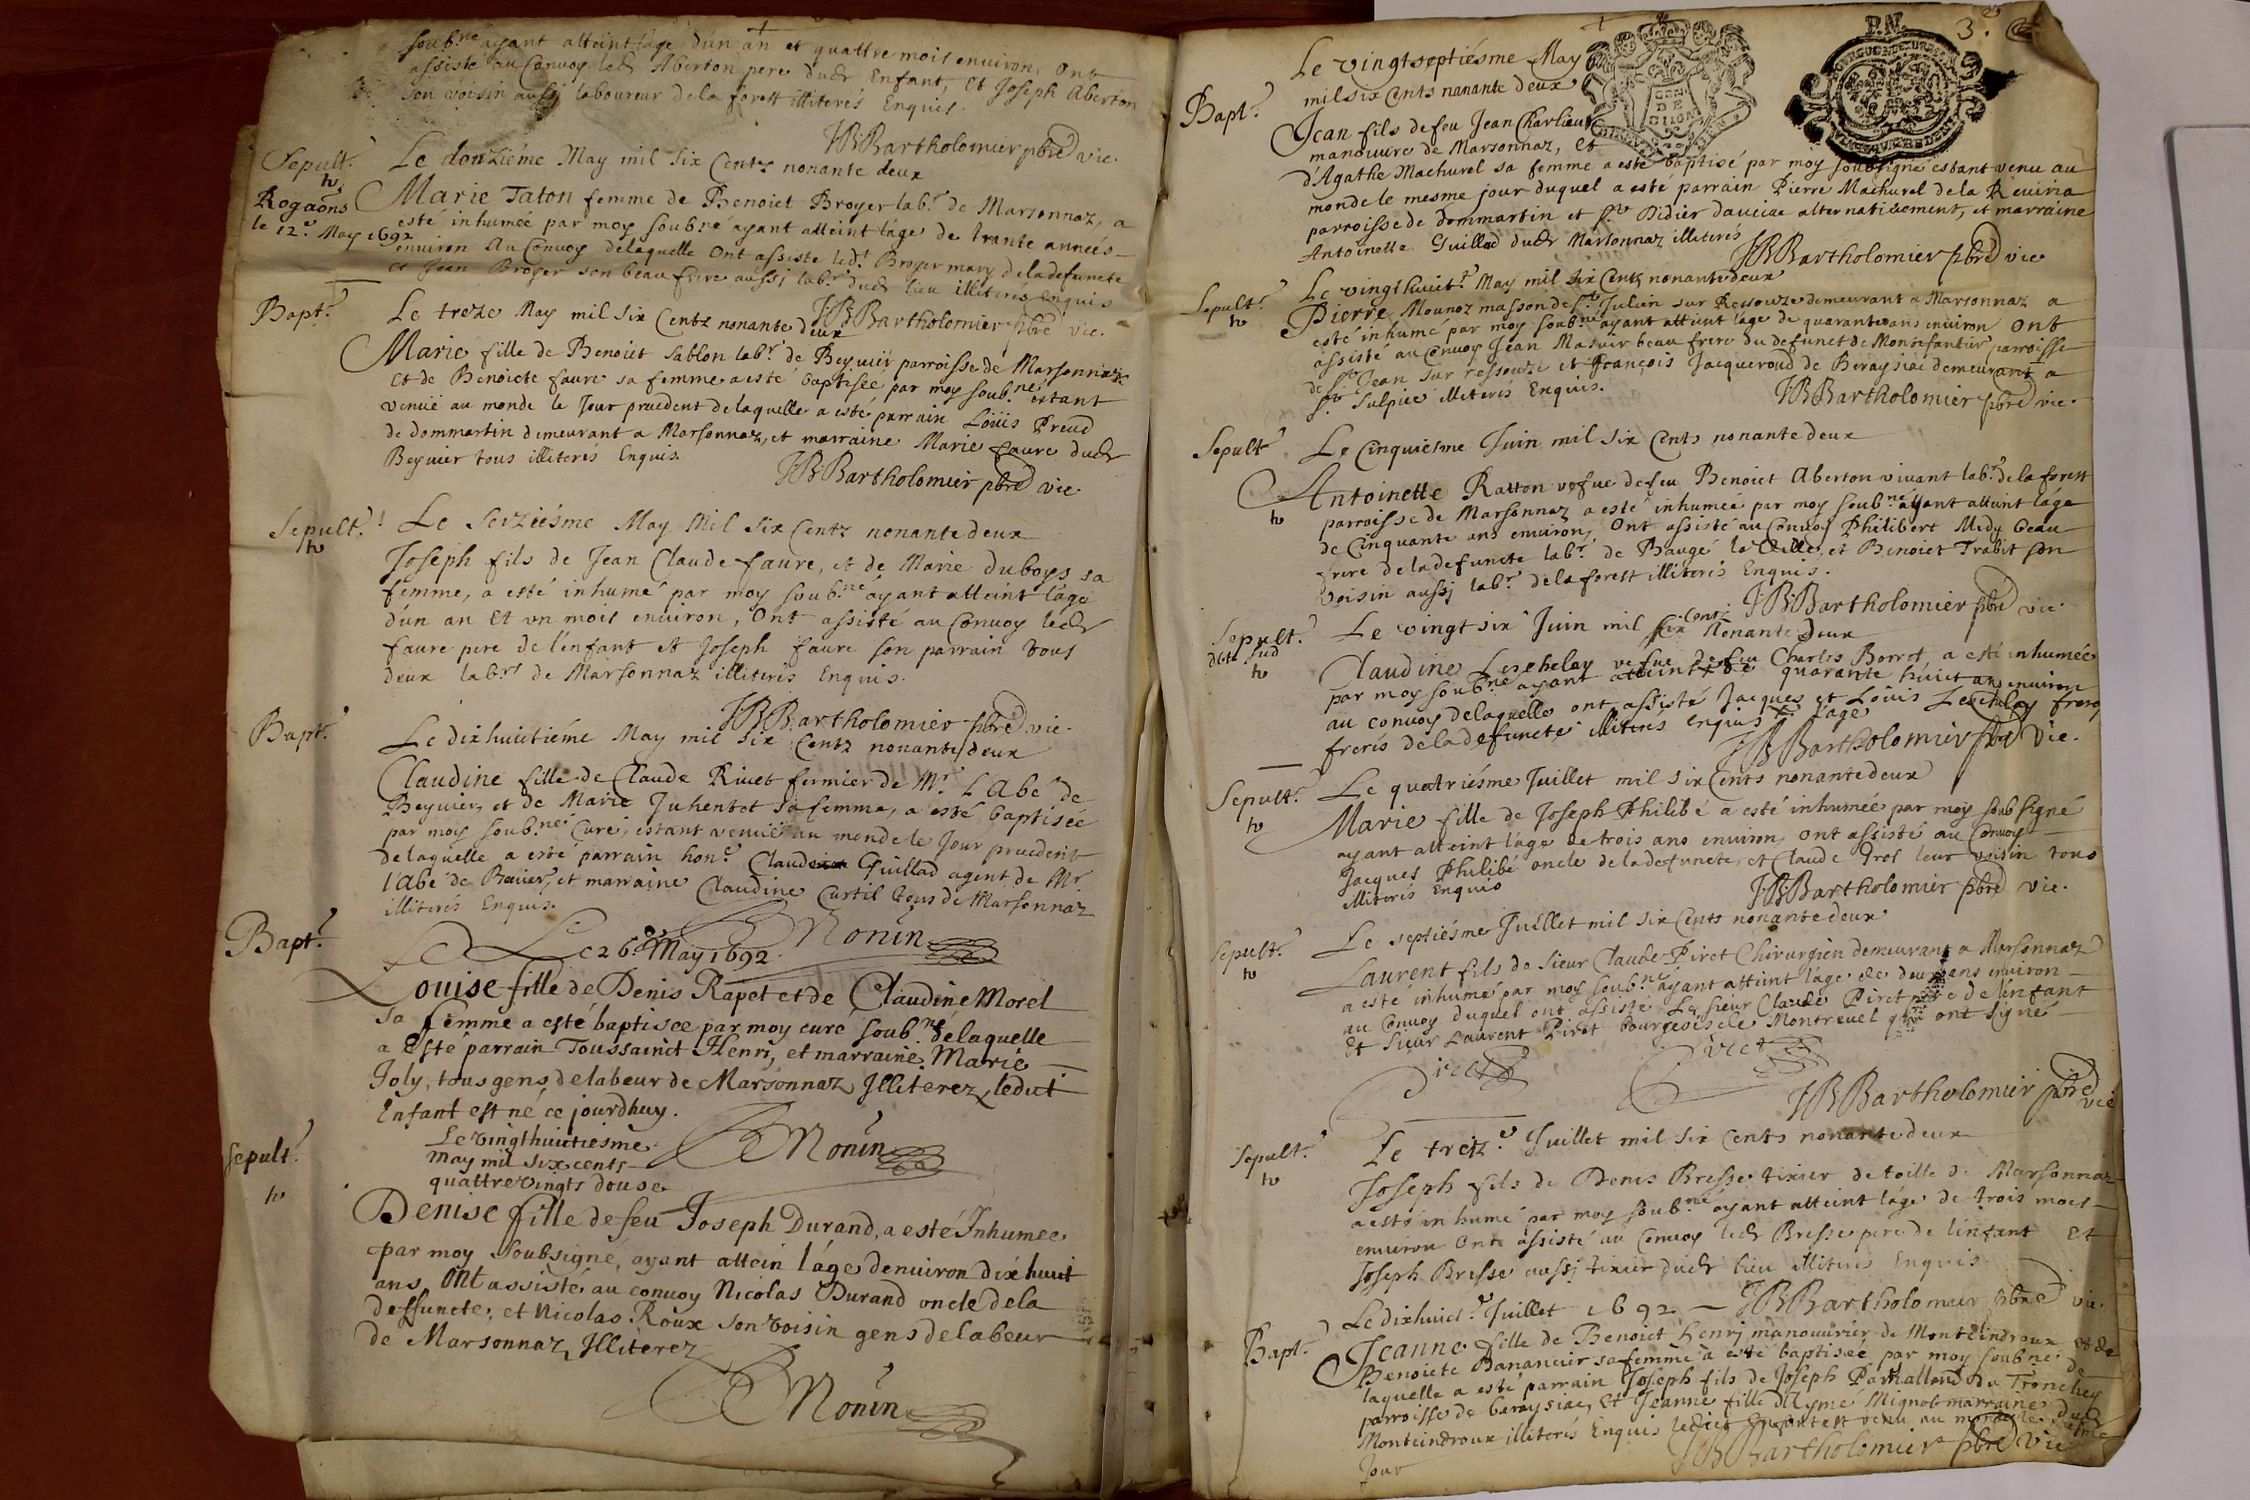 soub.né ayant atteint l'age d'un an et quattre mois environ, ont
assisté au Convoy led.t Aberton pere dud.t Enfant, et Joseph Aberton
son voisin aussj laboureur de la forest illiterés Enquis.
JBBartholomier pbre vic.
Sepult.e
Le douziéme May mil six Cents nonante deux
Rogaõns
le 12.e May 1692
Marie Taton femme de Benoict Broyer lab.r de Marsonnaz, a
esté inhumeé par moy soub.né ayant atteint l'áge de trante anneés
environ Au Convoy de laquelle Ont assisté led.t Broyer mary de la defuncte
et Jean Broyer son beau frere aussj lab.r dud.t lieu illiterés Enquis
JBBartholomier pbre vic.
Bapt.e
Le treze May mil six Centz nonante deux
Marie fille de Benoict Sablon lab.r de Beyvier parroisse de Marsonnaz
Et de Benoicte faure sa femme a esté baptisée par moy soub.né estant
venüe au monde le Jour precedent de laquelle a esté parrain Loüis Preud
de dommartin demeurant a Marsonnaz, et marraine Marie faure dud.t
Beyvier tous illiterés Enquis.
JBBartholomier pbre vic.
Sepult.e
Le seiziésme May Mil six Centz nonante deux
Joseph fils de Jean Claude faure, et de Marie duboys sa
femme, a esté inhumé par moy soub.né ayant atteint l'áge
d'un an Et un mois environ, Ont assisté au Convoy led.t
faure pere de l'enfant et Joseph faure son parrain tous
deux lab.rs de Marsonnaz illiterés Enquis.
JBBartholomier pbre vic.
Bapt.e
Le dixhuictiéme May mil six Centz nonante deux
Claudine fille de Claude Rivet fermier de M.r L'Abé de
Beyvier, et de Marie Juhentet sa femme, a esté baptisée
par moy soub.né Curé, estant venüe au monde le Jour precedent
de laquelle a esté parrain hon.e Claude Guillad agent de M.r
l'Abé de Beuier, et marraine Claudine Curtil tous de Marsonnaz
illiterés Enquis.
Monin
Bapt.e
Le 26.e May 1692
Louise fille de Denis Rapet et de Claudine Morel
sa femme a esté baptisee par moy curé soub.né de laquelle
a Esté parrain Toussainct Henri, et marraine Marie
Joly, tous gens de labeur de Marsonnaz Illiterez, ledict
Enfant est né ce jourdhuy.
Monin
Sepult.e
Le vingthuictiesme
may mil six cents
quattre vingts douse
Denise fille de feu Joseph Durand, a esté Inhumee
par moy soubsigné, ayant attein l'áge d'environ dix huit
ans, Ont assistés au convoy Nicolas Durand oncle de la
deffuncte, et Nicolas Roux son voisin gens de labeur
de Marsonnaz Illiterez
Monin
P.N. 3.e
Le vingtseptiésme May
mil six Cents nonante deux
Bapt.e
Jean fils de feu Jean Charlieu
manouure de Marsonnaz, Et
GEN
DE
DIION
d'Agathe Machurel sa femme a esté baptisé par moy soubsigné estant venu au
monde le mesme jour duquel a esté parrain Pierre Machurel de la
parroisse de dommartin et S.t Didier daussiac alternativement, et marraine
Antoinette Guillad dud.t Marsonnaz illiterés
JBBartholomier pbre vic
Sepult.e
Le vingthuict.e May mil six Cents nonante deux
Pierre Mounoz masson de S.t Julien sur Ressouze demeurant a Marsonnaz a
esté inhumé par moy soub.né ayant atteint l'age de quarante ans environ Ont
assisté au Convoy Jean beau frere du defunct de parroisse
de S.t Jean sur ressouze et François Jacqueroud de Beraysiac demeurant a
S.t Sulpice illiterés Enquis.
JBBartholomier pbre vic.
Sepult.e
Le Cinquiésme Juin mil six Cents nonante deux
Antoinette Ratton vefue de feu Benoict Aberton vivant lab.r de la forest
parroisse de Marsonnaz a esté inhumeé par moy soub.né ayant atteint l'áge
de Cinquante ans environ, Ont assisté au Convoy Philibert Midy beau
frere de la defuncte lab.r de Baugé la Ville, et Benoict Trabit son
voisin aussj lab.r de la forest illiterés Enquis.
JBBartholomier pbre vic.
Sepult.e
Le vingt six Juin mil six Cents Nonante Deux
Claudine Leschelay vefue de feu Charles Borret a esté inhumée
par moy soub.né ayant atteint quarante huict ans environ
au convoy de laquelle ont assisté Jacques et Loüis Leschelay
freres de la defuncte illiterés enquis l'age
JBBartholomier pbre vic.
Sepult.e
Le quatriésme Juillet mil six Cents nonante deux
Marie fille de Joseph Philibé a esté inhumée par moy soubsigné
ayant atteint l'áge de trois ans environ, ont assisté au Convoy
Jacques Philibé oncle de la defuncte, et Claude Grof leur voisin tous
illiterés Enquis
JBBartholomier pbre vic.
Sepult.e
Le septiésme Juillet mil six Cents nonante deux
Laurent fils de Sieur Claude Piret Chirurgien demeurant a Marsonnaz
a esté inhumé par moy soub.né ayant atteint l'age de deux ans environ
au Convoy duquel ont assisté Le Sieur Claude Piret pere de l'enfant
et Sieur Laurent Piret bourgeois de Montrevel qui ont signé
Piret Piret
JBBartholomier pbre
vic
Sepult.e
Le treiz.e Juillet mil six Cents nonante deux
Joseph fils de Denis Bresse tixier de toille de Marsonnaz
a esté inhumé par moy soub.né ayant atteint l'áge de trois mois
environ Onte assisté au Convoy led.t Bresse pere de l'enfant Et
Joseph Bresse aussj tixier dud.t lieu illiterés Enquis
JBBartholomier pbre vic.
Bapt.e
Le dixhuict.e Juillet 1692
Jeanne fille de Benoict Henrj manouurier de Montcindroux et de
Benoicte Bananeur sa femme a esté baptisée par moy soub.né de
laquelle a esté parrain Joseph fils de Joseph Parvalland du Tronchey
parroisse de beraysiac, Et Jeanne fille d'Aymé Mignot marraine dud.t
Montcindroux illiterés Enquis ledict Enfant est venu au monde le mesme
Jour
JBBartholomier pbre vic